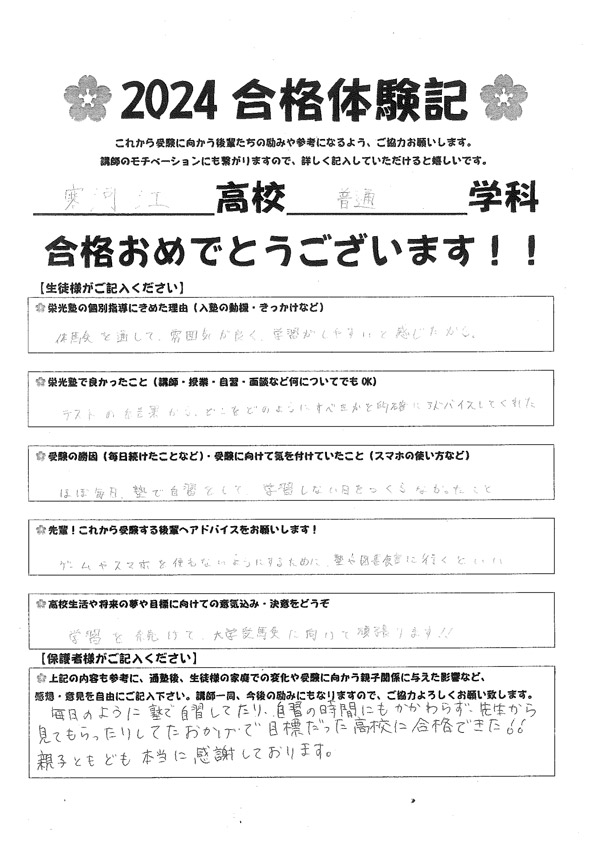 2024 合格体験記
これから受験に向かう後輩たちの励みや参考になるよう、ご協力お願いします。
講師のモチベーションにも繋がりますので、詳しく記入していただけると嬉しいです。
寒河江 高校 普通 学科
合格おめでとうございます!!
【生徒様がご記入ください】
栄光塾の個別指導にきめた理由（入塾の動機・きっかけなど）
体験を通して、雰囲気が良く、学習がしやすいと感じたから。
栄光塾で良かったこと（講師・授業・自習・面談など何についてでもOK）
テストの結果から、どこをどのようにすべきかを的確にアドバイスしてくれた
受験の勝因（毎日続けたことなど）・受験に向けて気を付けていたこと（スマホの使い方など）
ほぼ毎日、塾で自習をして、学習しない日をつくらなかったこと
先輩！これから受験する後輩へアドバイスをお願いします！
ゲームやスマホを使わないようにするために、塾や図書館に行くといい
高校生活や将来の夢や目標に向けての意気込み・決意をどうぞ
学習を続けて、大学受験に向けて頑張ります!!
【保護者様がご記入ください】
上記の内容も参考に、通塾後、生徒様の家庭での変化や受験に向かう親子関係に与えた影響など、
感想・意見を自由にご記入下さい。講師一同、今後の励みにもなりますので、ご協力よろしくお願い致します。
毎日のように塾で自習してたり、自習の時間にもかかわらず、先生から
見てもらったりしてたおかげで目標だった高校に合格できた!!
親子ともども本当に感謝しております。